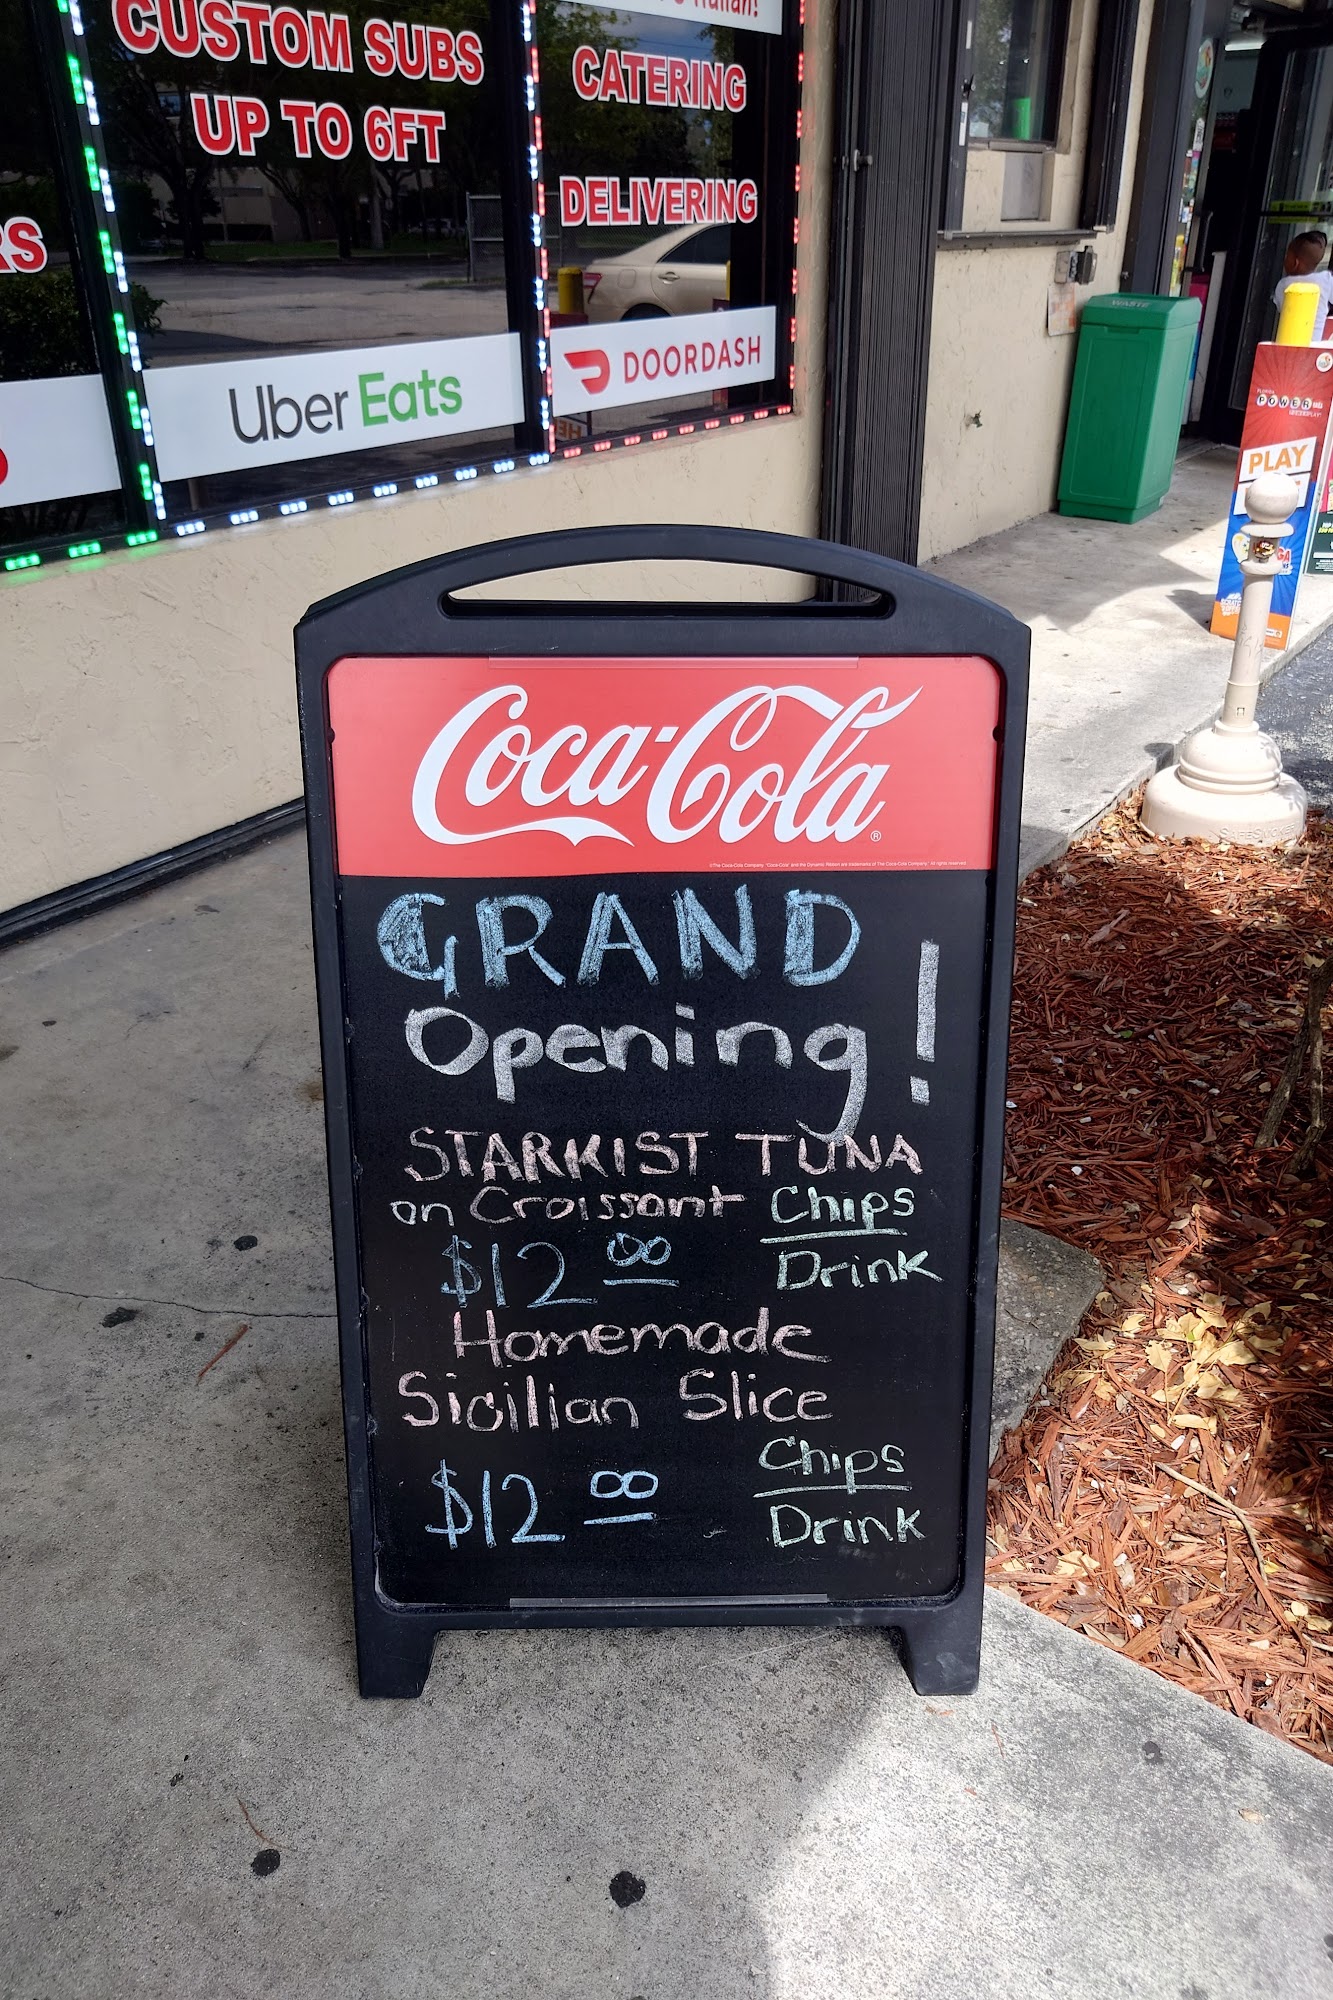 CUSTOM SUBS
UP TO 6FT
CATERING
DELIVERING
RS
Uber Eats
DOORDASH
WASTE
POWER
PLAY
Coca-Cola
®
GRAND
Opening!
STARKIST TUNA
on Croissant Chips
$12.00 Drink
Homemade
Sicilian Slice
$12.00 Chips
Drink